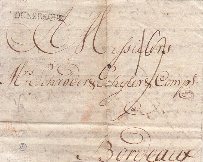 DUNKERQUE
A Messieurs
Mrs. Schröder & Schÿler & Comp.
Bordeaux